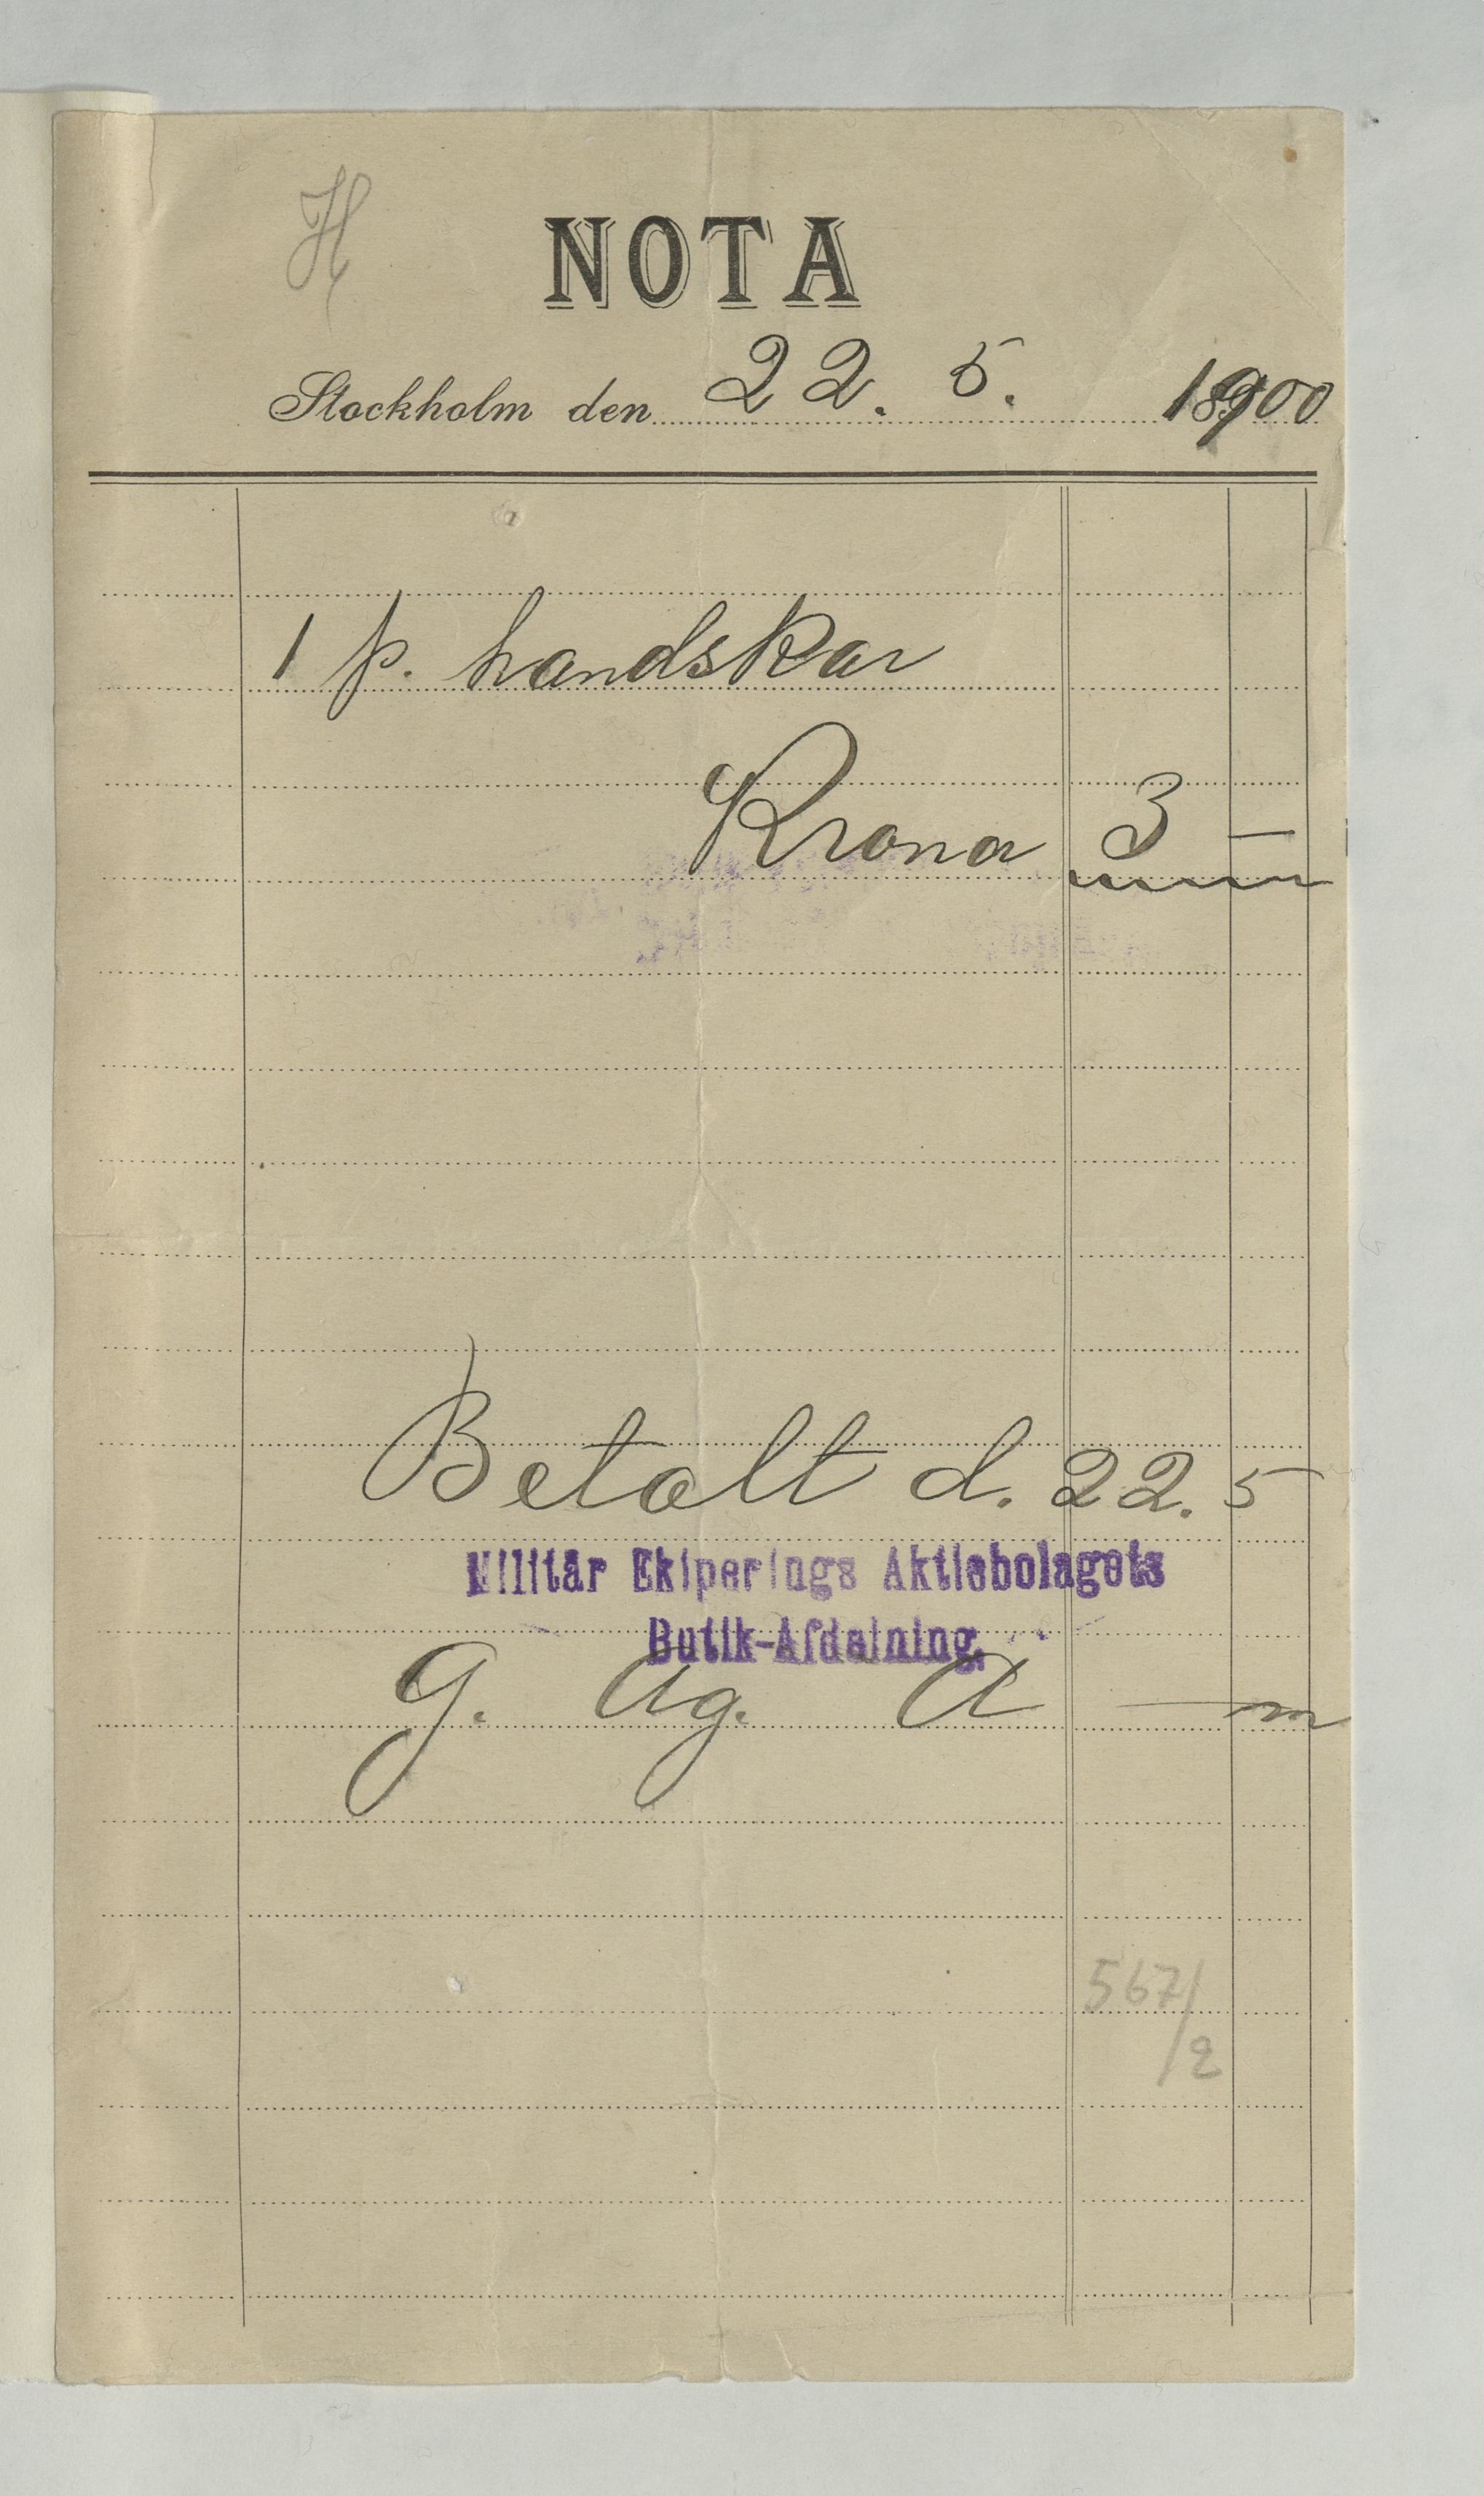 H
NOTA
Stockholm den 22. 5. 1900
1 p. handskar
Kronor 3 —
Betalt d. 22. 5
Militär Ekiperings Aktiebolagets
Butik-Afdelning.
G. Ag. A—m
567/2